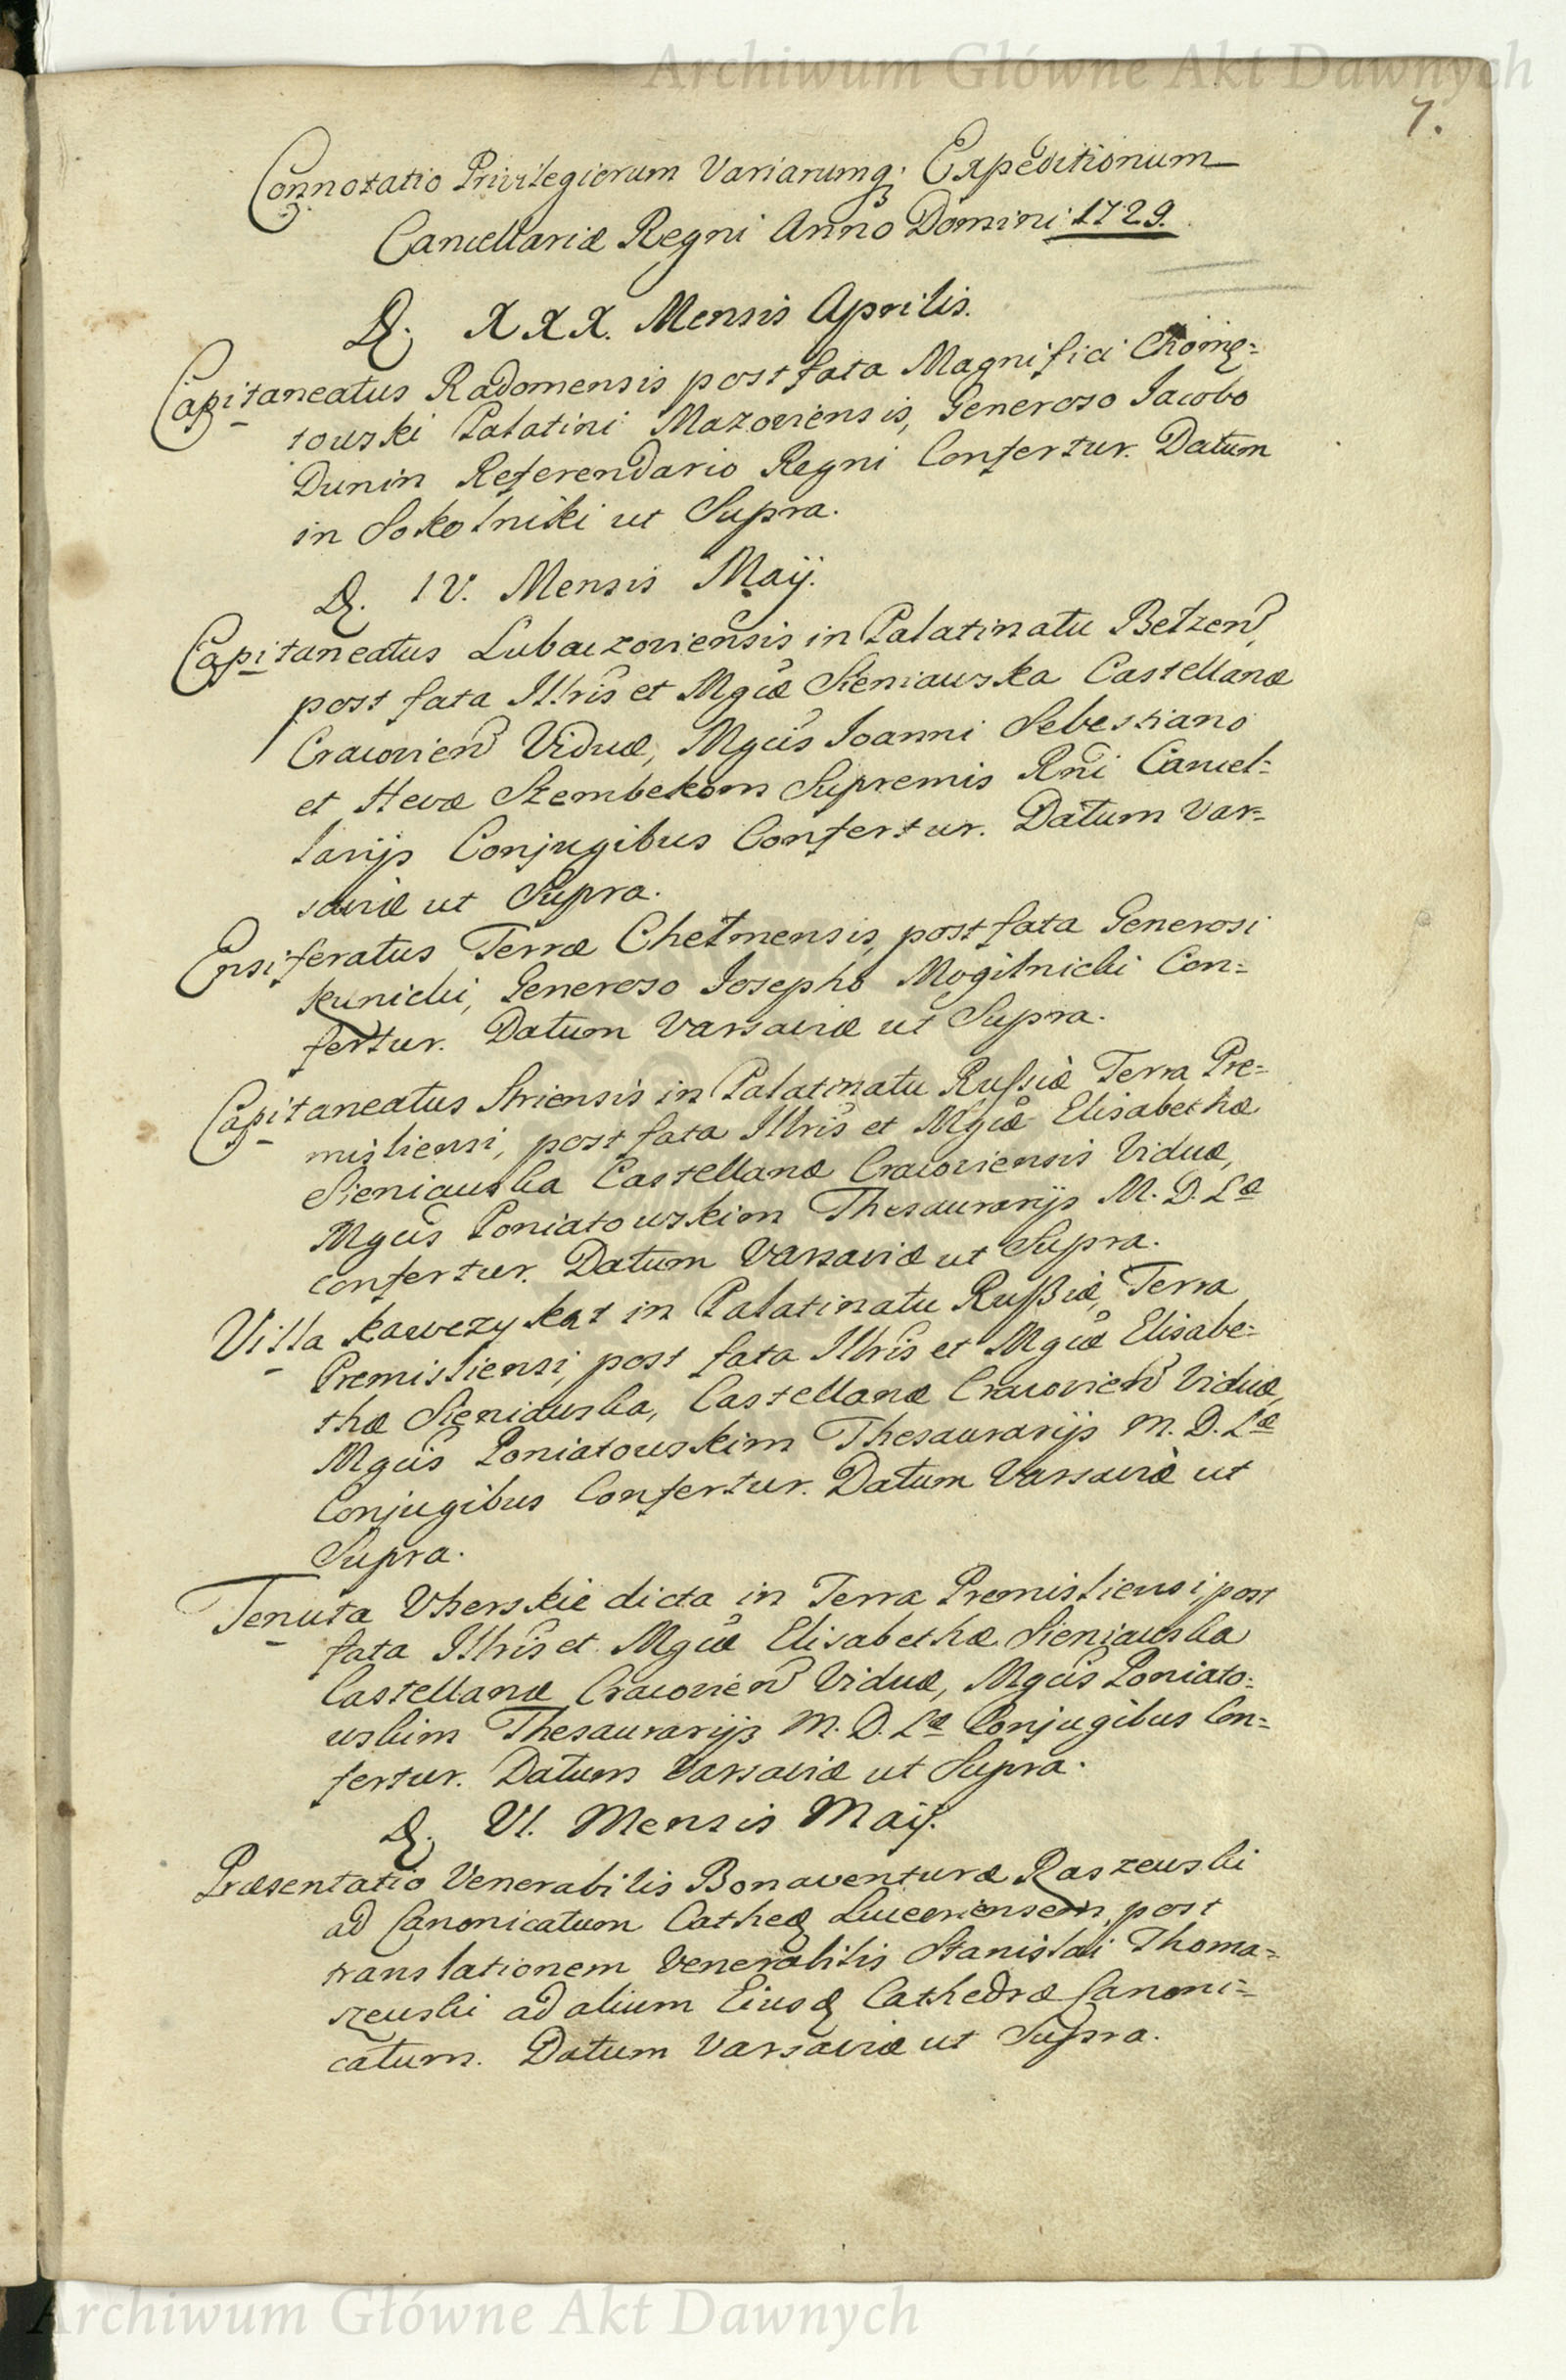 Archiwum Główne Akt Dawnych
7.
Connotatio Privilegiorum Variarumq; Expeditionum
Cancellariæ Regni Anno Domini 1729.
D. XXX. Mensis Aprilis.
Capitaneatus Radomensis post fata Magnifici Chomę=
towski Palatini Mazoviensis, Generoso Iacobo
Dunin Referendario Regni Confertur. Datum
in Sokolniki ut Supra.
D. IV. Mensis Maij.
Capitaneatus Lubaczoviensis in Palatinatu Belzen,
post fata Illris et Mgcæ Sieniawska Castellanæ
Cracovien Viduæ, Mgcis Ioanni Sebestiano
et Hevæ Szembekom Supremis Rni Cancel=
larijs Conjugibus Confertur. Datum Var=
saviæ ut Supra.
Ensiferatus Terræ Chełmensis, post fata Generosi
Kunicki, Generoso Iosepho Mogilnicki Con=
fertur. Datum Varsaviæ ut Supra.
Capitaneatus Striensis in Palatinatu Russiæ Terra Pre=
misliensi, post fata Illris et Mgcæ Elisabethæ
Sieniawska Castellanæ Cracoviensis Viduæ,
Mgcis Poniatowskim Thesaurarijs M. D. Læ
confertur. Datum Varsaviæ ut Supra.
Villa Kawczykąt in Palatinatu Russiæ, Terra
Premisliensi, post fata Illris et Mgcæ Elisabe=
thæ Sieniawska, Castellanæ Cracovien Viduæ,
Mgcis Poniatowskim Thesaurarijs M. D. Læ
Conjugibus Confertur. Datum Varsaviæ ut
Supra.
Tenuta Vherskie dicta in Terra Premisliensi, post
fata Illris et Mgcæ Elisabethæ Sieniawska
Castellanæ Cracovien Viduæ, Mgcis Poniato=
wskim Thesaurarijs M. D. Læ Conjugibus Con=
fertur. Datum Varsaviæ ut Supra.
D. VI. Mensis Maij.
Præsentatio Venerabilis Bonaventuræ Raszewski
ad Canonicatum Cathed Luceoriensem, post
translationem Venerabilis Stanislai Thoma=
szewski ad alium Eiusd Cathedræ Canoni=
catum. Datum Varsaviæ ut Supra.
Archiwum Główne Akt Dawnych